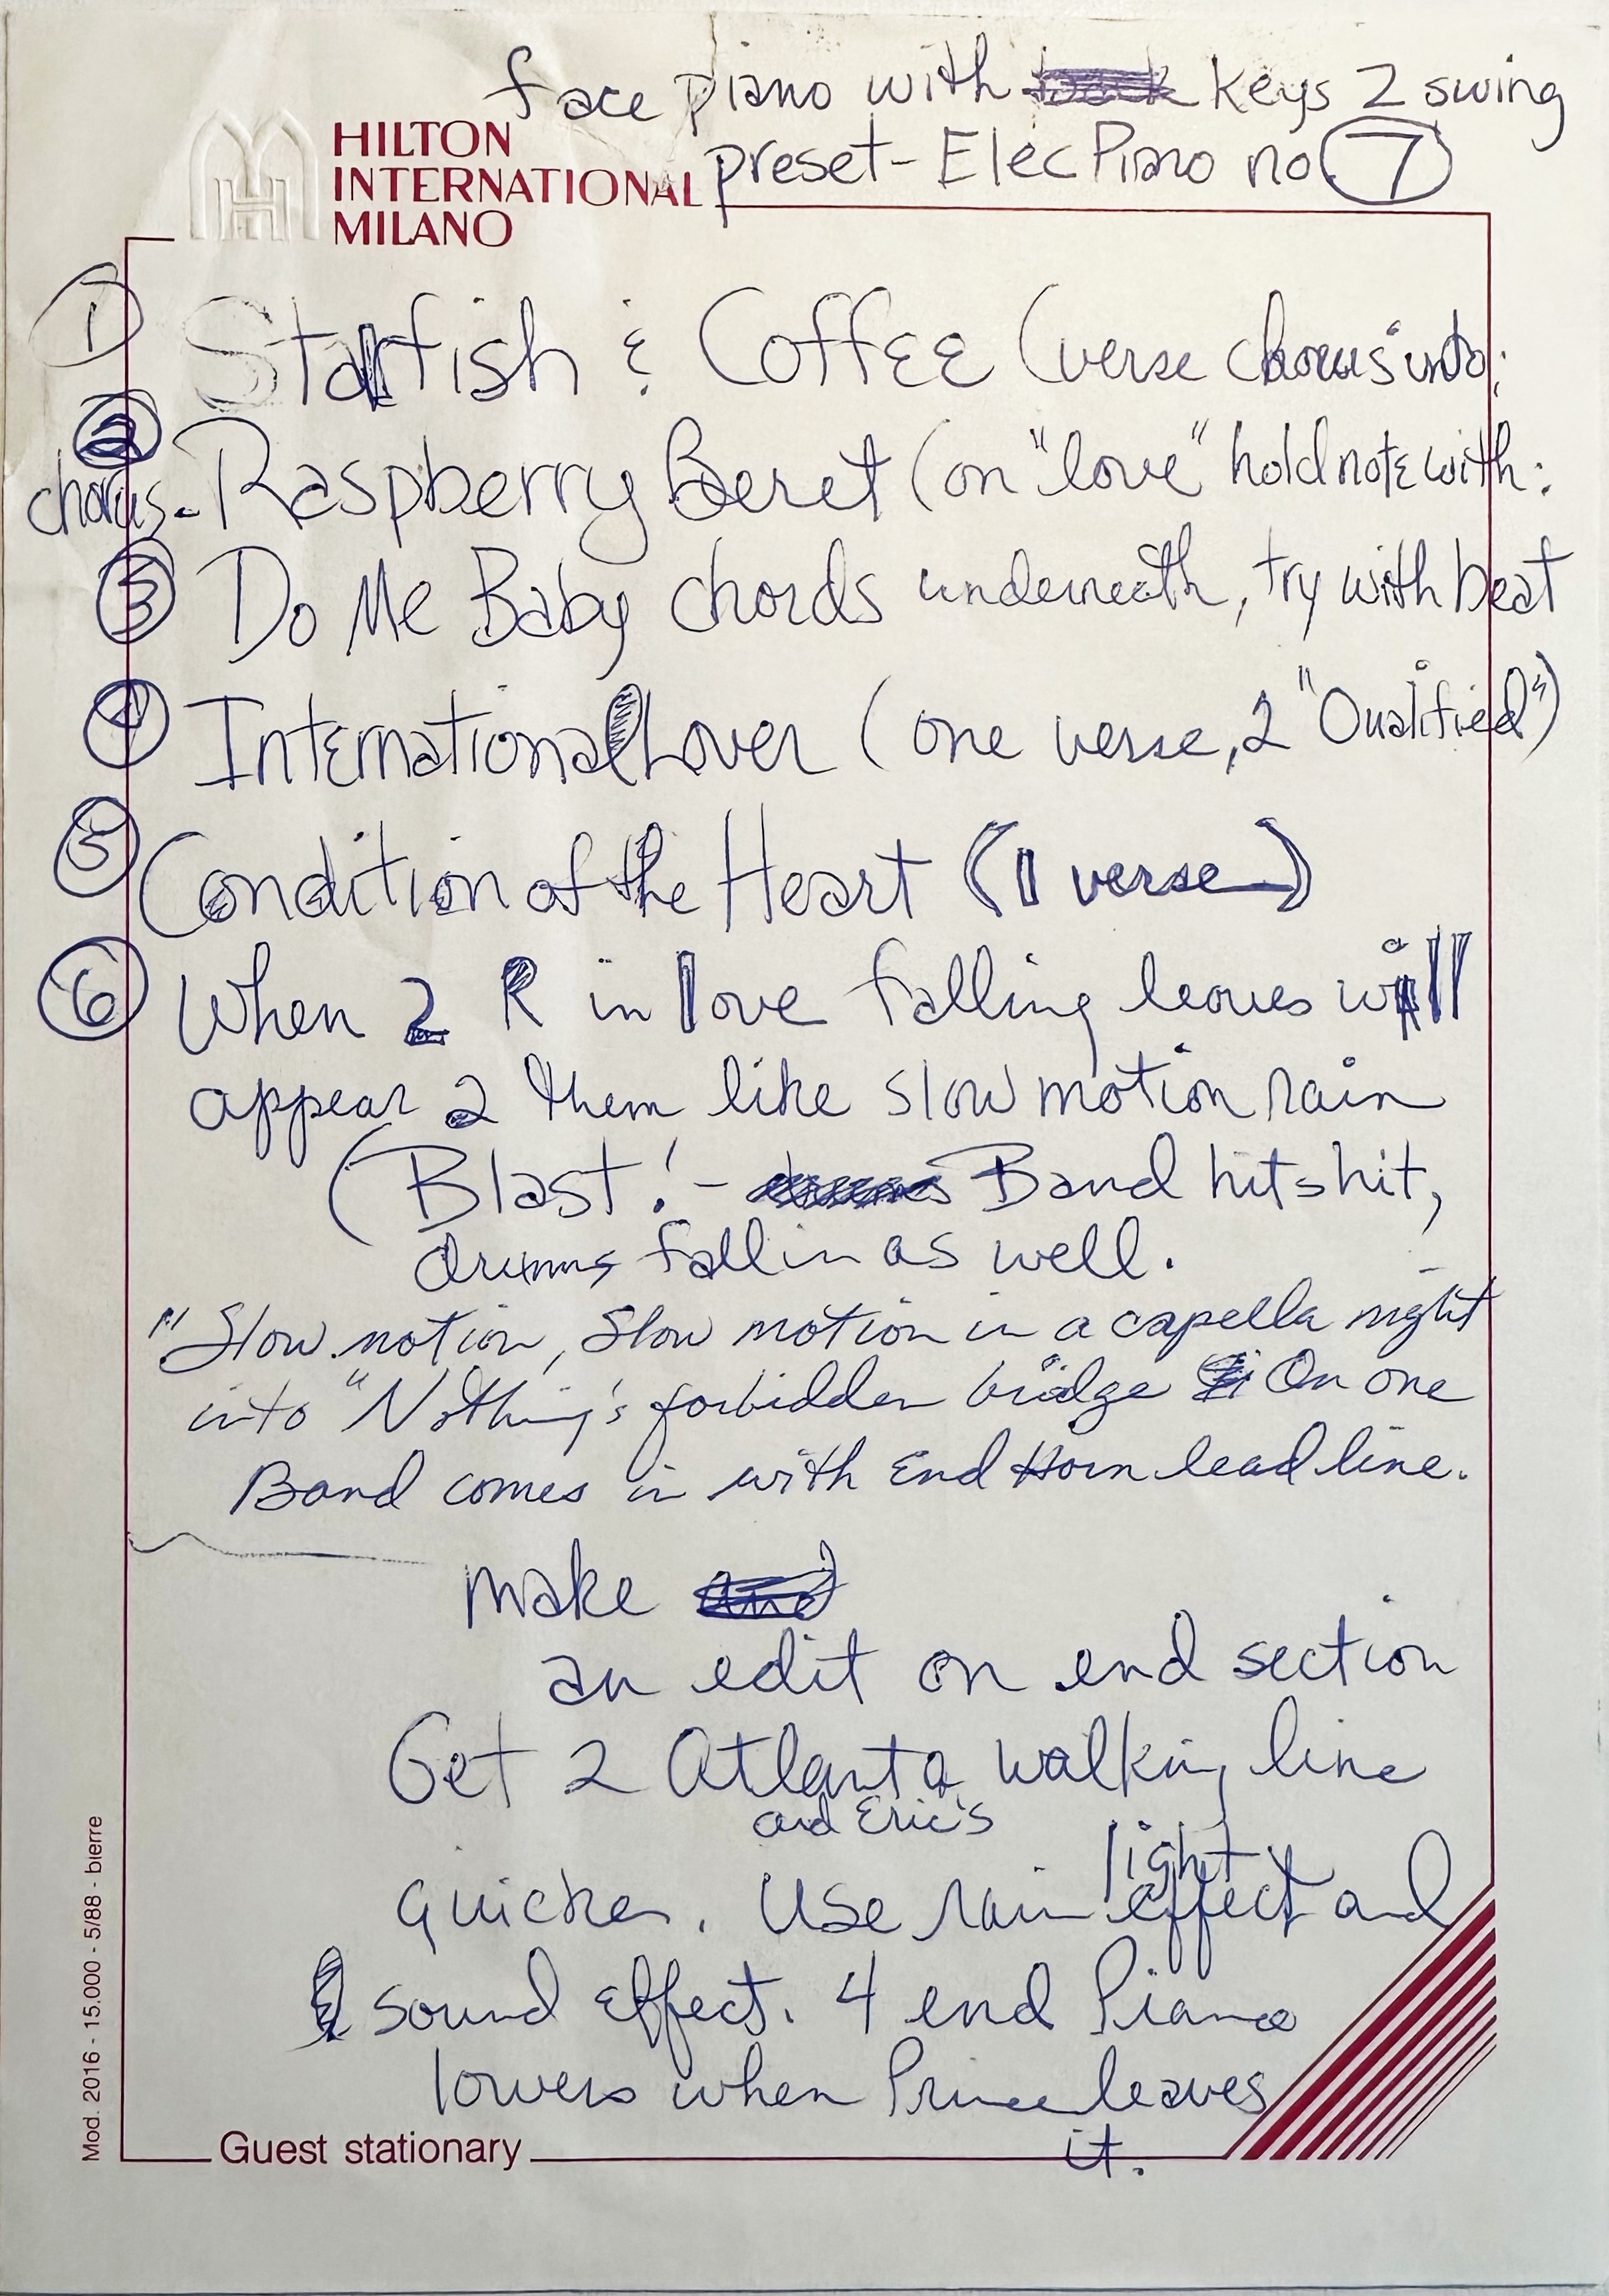 face piano with keys 2 swing
preset - Elec Piano no 7
HILTON
INTERNATIONAL
MILANO
1 Starfish & Coffee (verse chorus into:
2
chorus - Raspberry Beret (on "love" hold note with:
3 Do Me Baby chords underneath, try with beat
4 International Lover (one verse, 2 "Qualified")
5 Condition of the Heart (1 verse)
6 When 2 R in love falling leaves will
appear 2 them like slow motion rain
(Blast! - Band hits hit,
drums fall in as well.
"Slow motion, Slow motion in a capella night
into "Nothing's forbidden bridge On one
Band comes in with End Horn lead line.
make
an edit on end section
Get 2 Atlanta walking line
and Eric's
light
quicker. Use rain effect and
sound effect. 4 end Piano
lowers when Prince leaves
it.
Guest stationary
Mod. 2016 - 15.000 - 5/88 - bierre